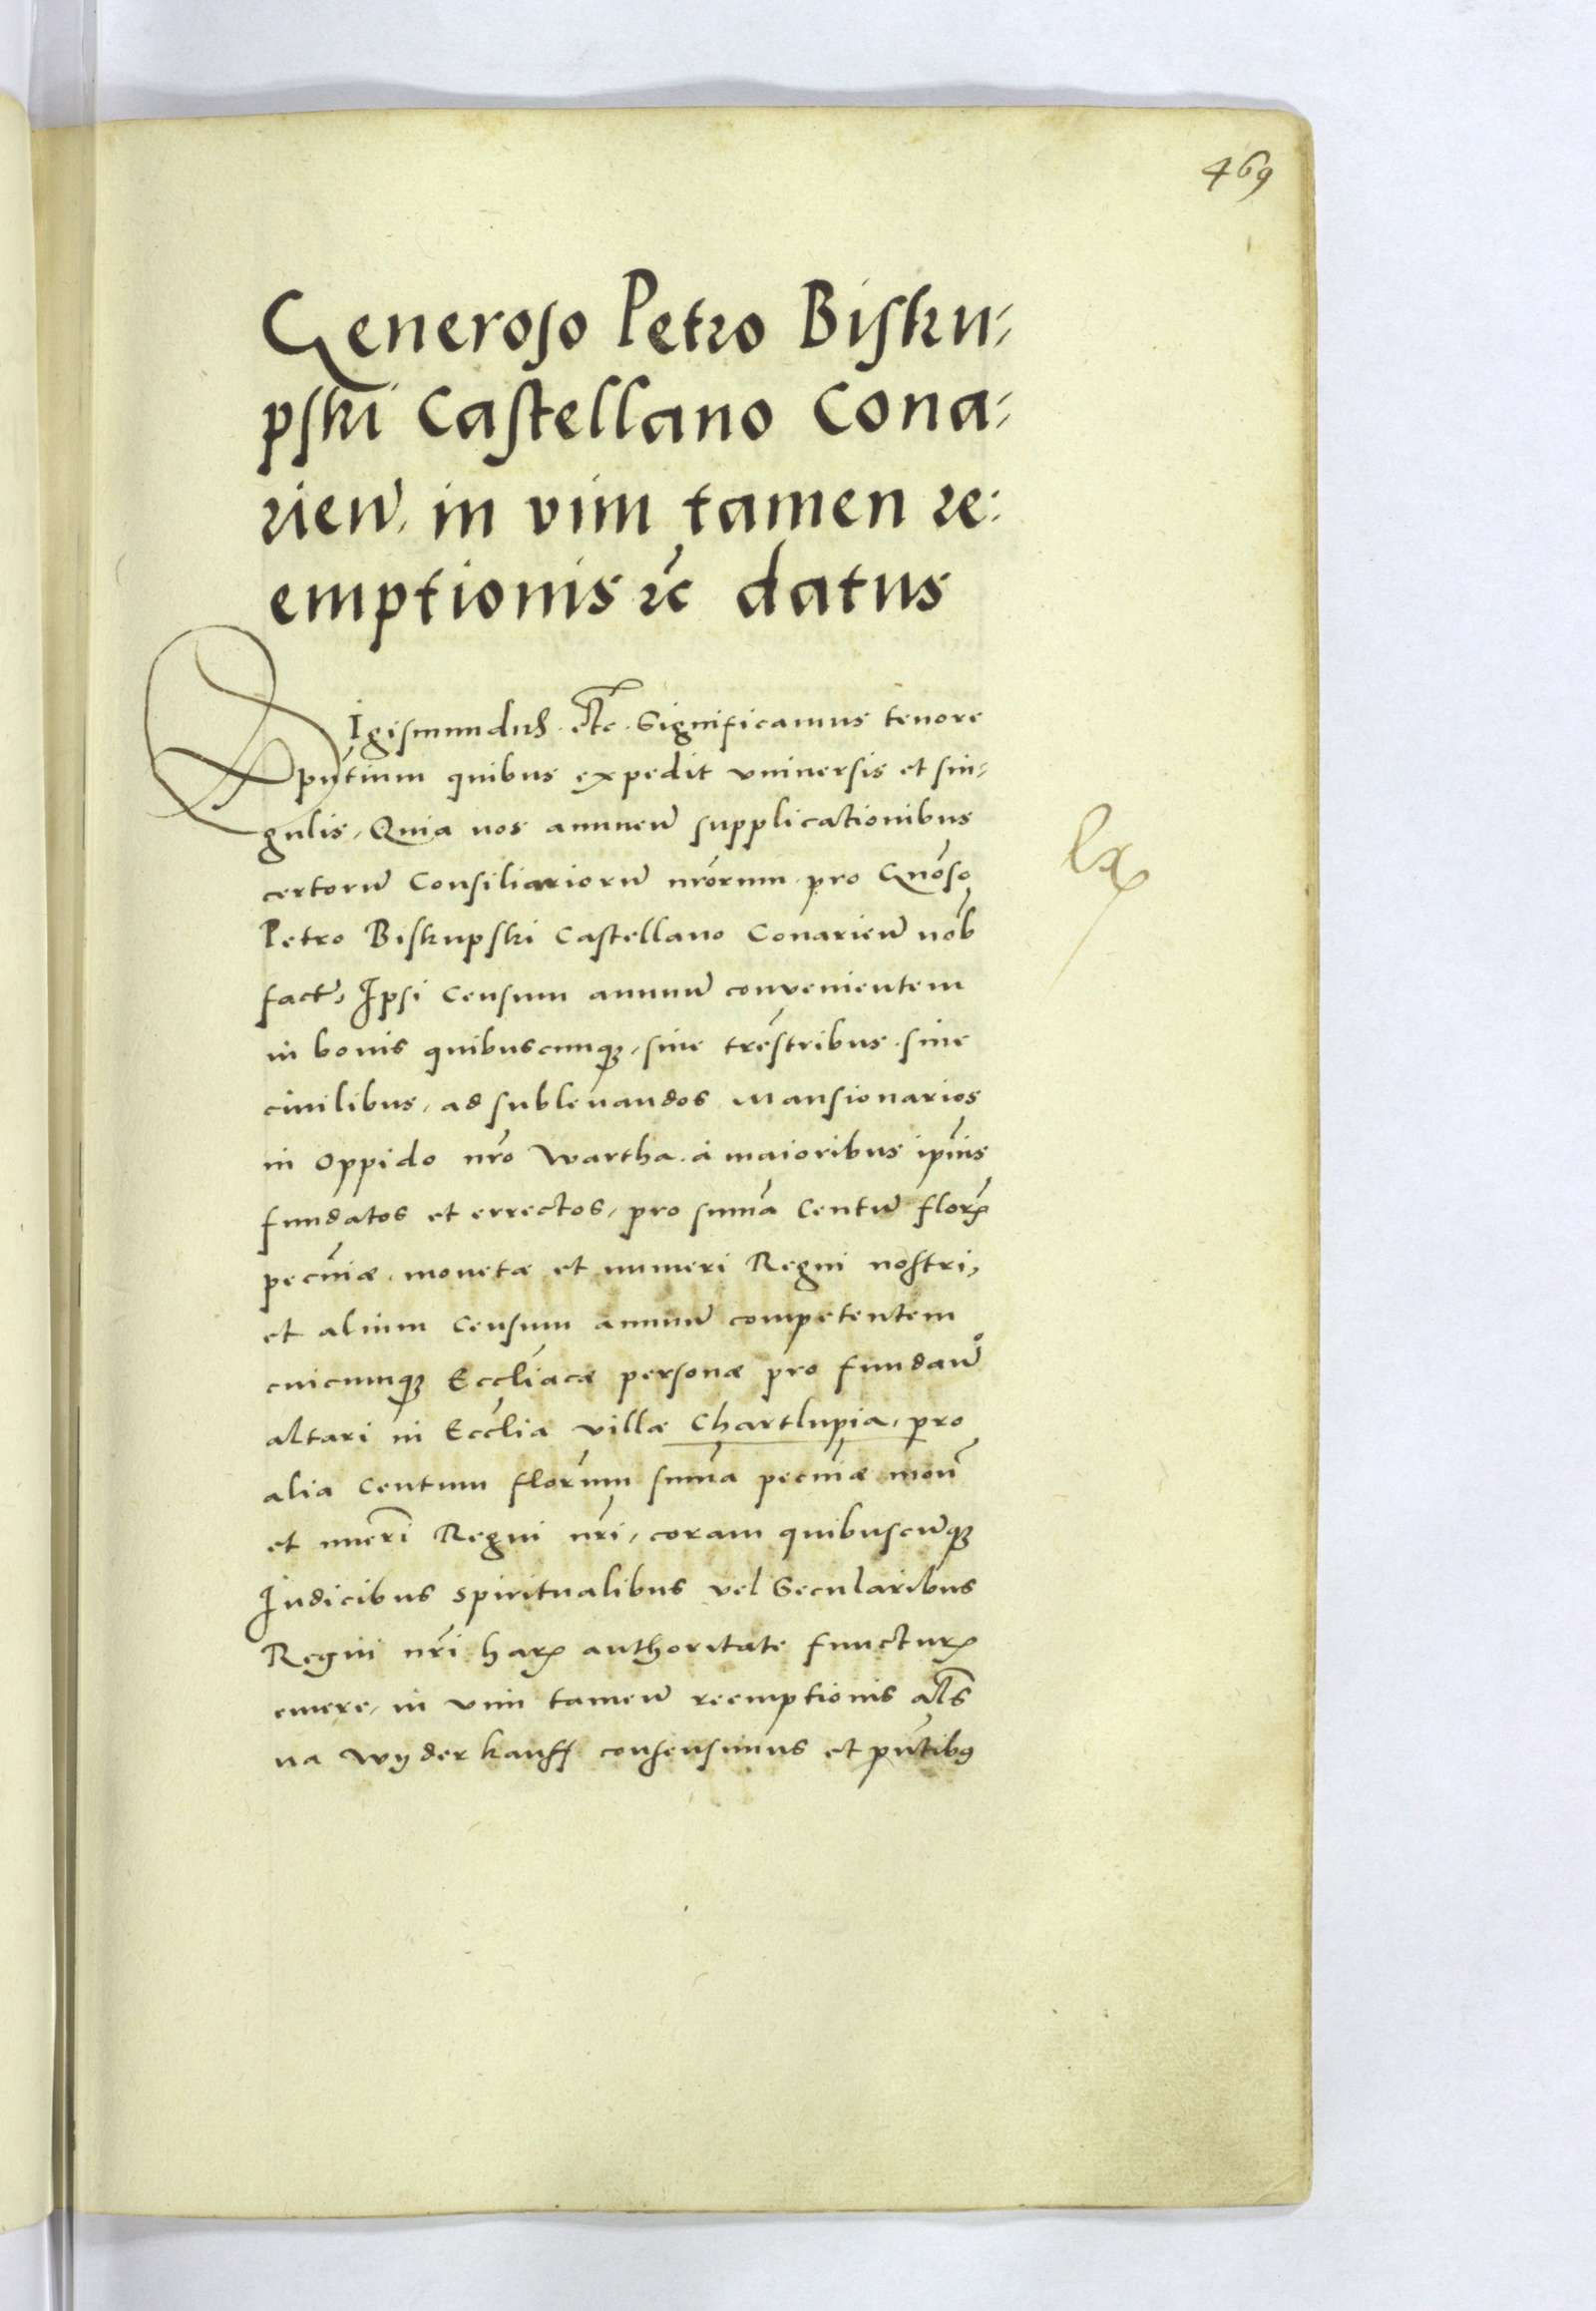 469
Generoso Petro Bisku-
pski Castellano Cona-
rień. in vim tamen re-
emptionis rc̃ datus
SIgismundus. etc. Significamus tenore
pñtium quibus expedit vniuersis et sin-
gulis, Quia nos annueñ supplicationibus
certorũ Consiliariorũ nr̃orum pro Gñoso
Petro Biskupski Castellano Conarieñ nob̃
fact̃, Ipsi Censum annuũ convenientem
in bonis quibuscunq3, siue tr̃estribus siue
ciuilibus, ad subleuandos Mansionarios
in Oppido nr̃o Wartha á maioribus ip̃ius
fundatos et errectos, pro sum̃a Centũ florꝝ
pecũiæ monetæ et numeri Regni nostri,
et alium Censum annuũ competentem
cuicunq3 Eccl̃iacæ personæ pro fundañ
altari in Eccl̃ia villæ Chartlupia, pro
alia Centum flor̃um sum̃a pecũiæ moñ
et nueri Regni nr̃i, coram quibuscũq3
Iudicibus spiritualibus vel Secularibus
Regni nr̃i harꝝ authoritate functurꝝ
emere, in vim tameñ reemptionis al̃s
na wyderkauff consensimus et pñtibꝰ